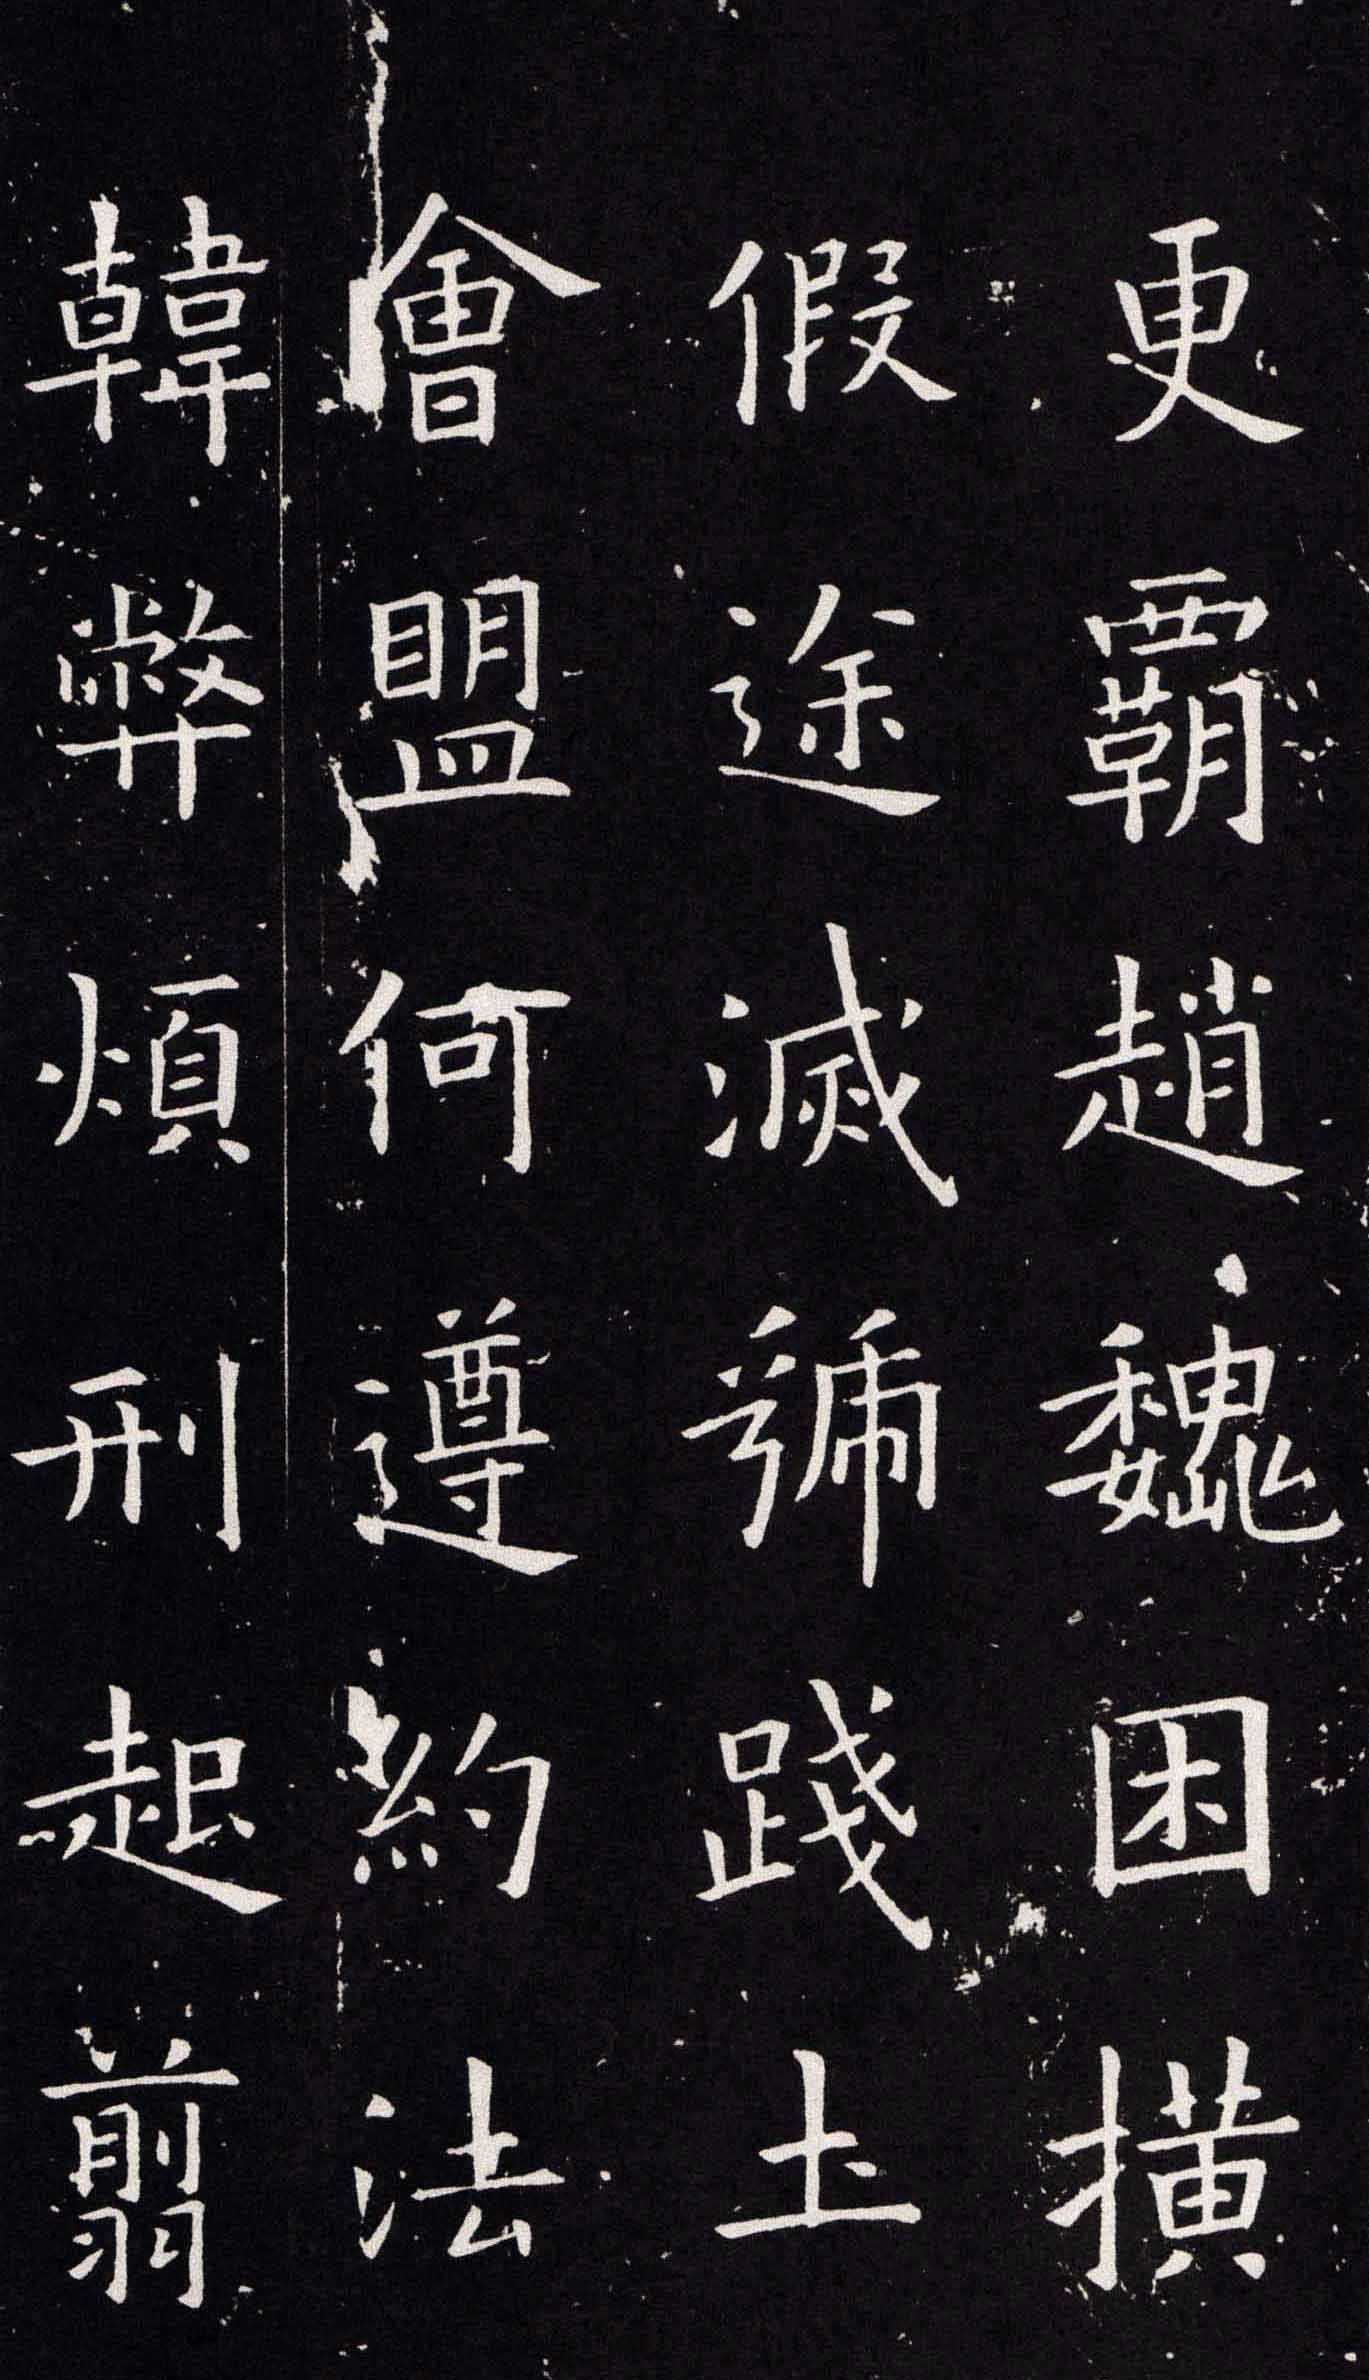 更霸趙魏困撗
假途滅虢踐土
會盟何遵約法
韓弊煩刑起翦